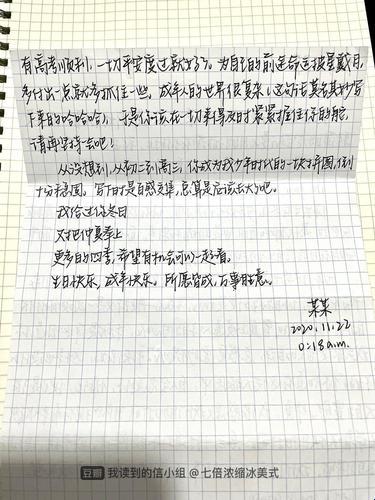 有高考顺利，一切平安度过就好了。为自己的前途命运披星戴月，
多付出一点就多抓住一些，成年人的世界很复杂（这句话莫名其妙写
下来的哈哈哈），于是你应该在一切来得及时紧紧握住你的舵，
请再坚持去吧！
从没想到，从初二到高三，你成为我少年时代的一块拼图，
十分丰富。写下时是百感交集，总算是应该长大了吧。
我给过你冬日
又把仲夏奉上
更多的四季，希望有机会可以一起看。
生日快乐，成年快乐。所愿皆成，万事胜意。
某某
2020.11.22
0:18a.m.
豆瓣 我读到的信小组 @七倍浓缩冰美式